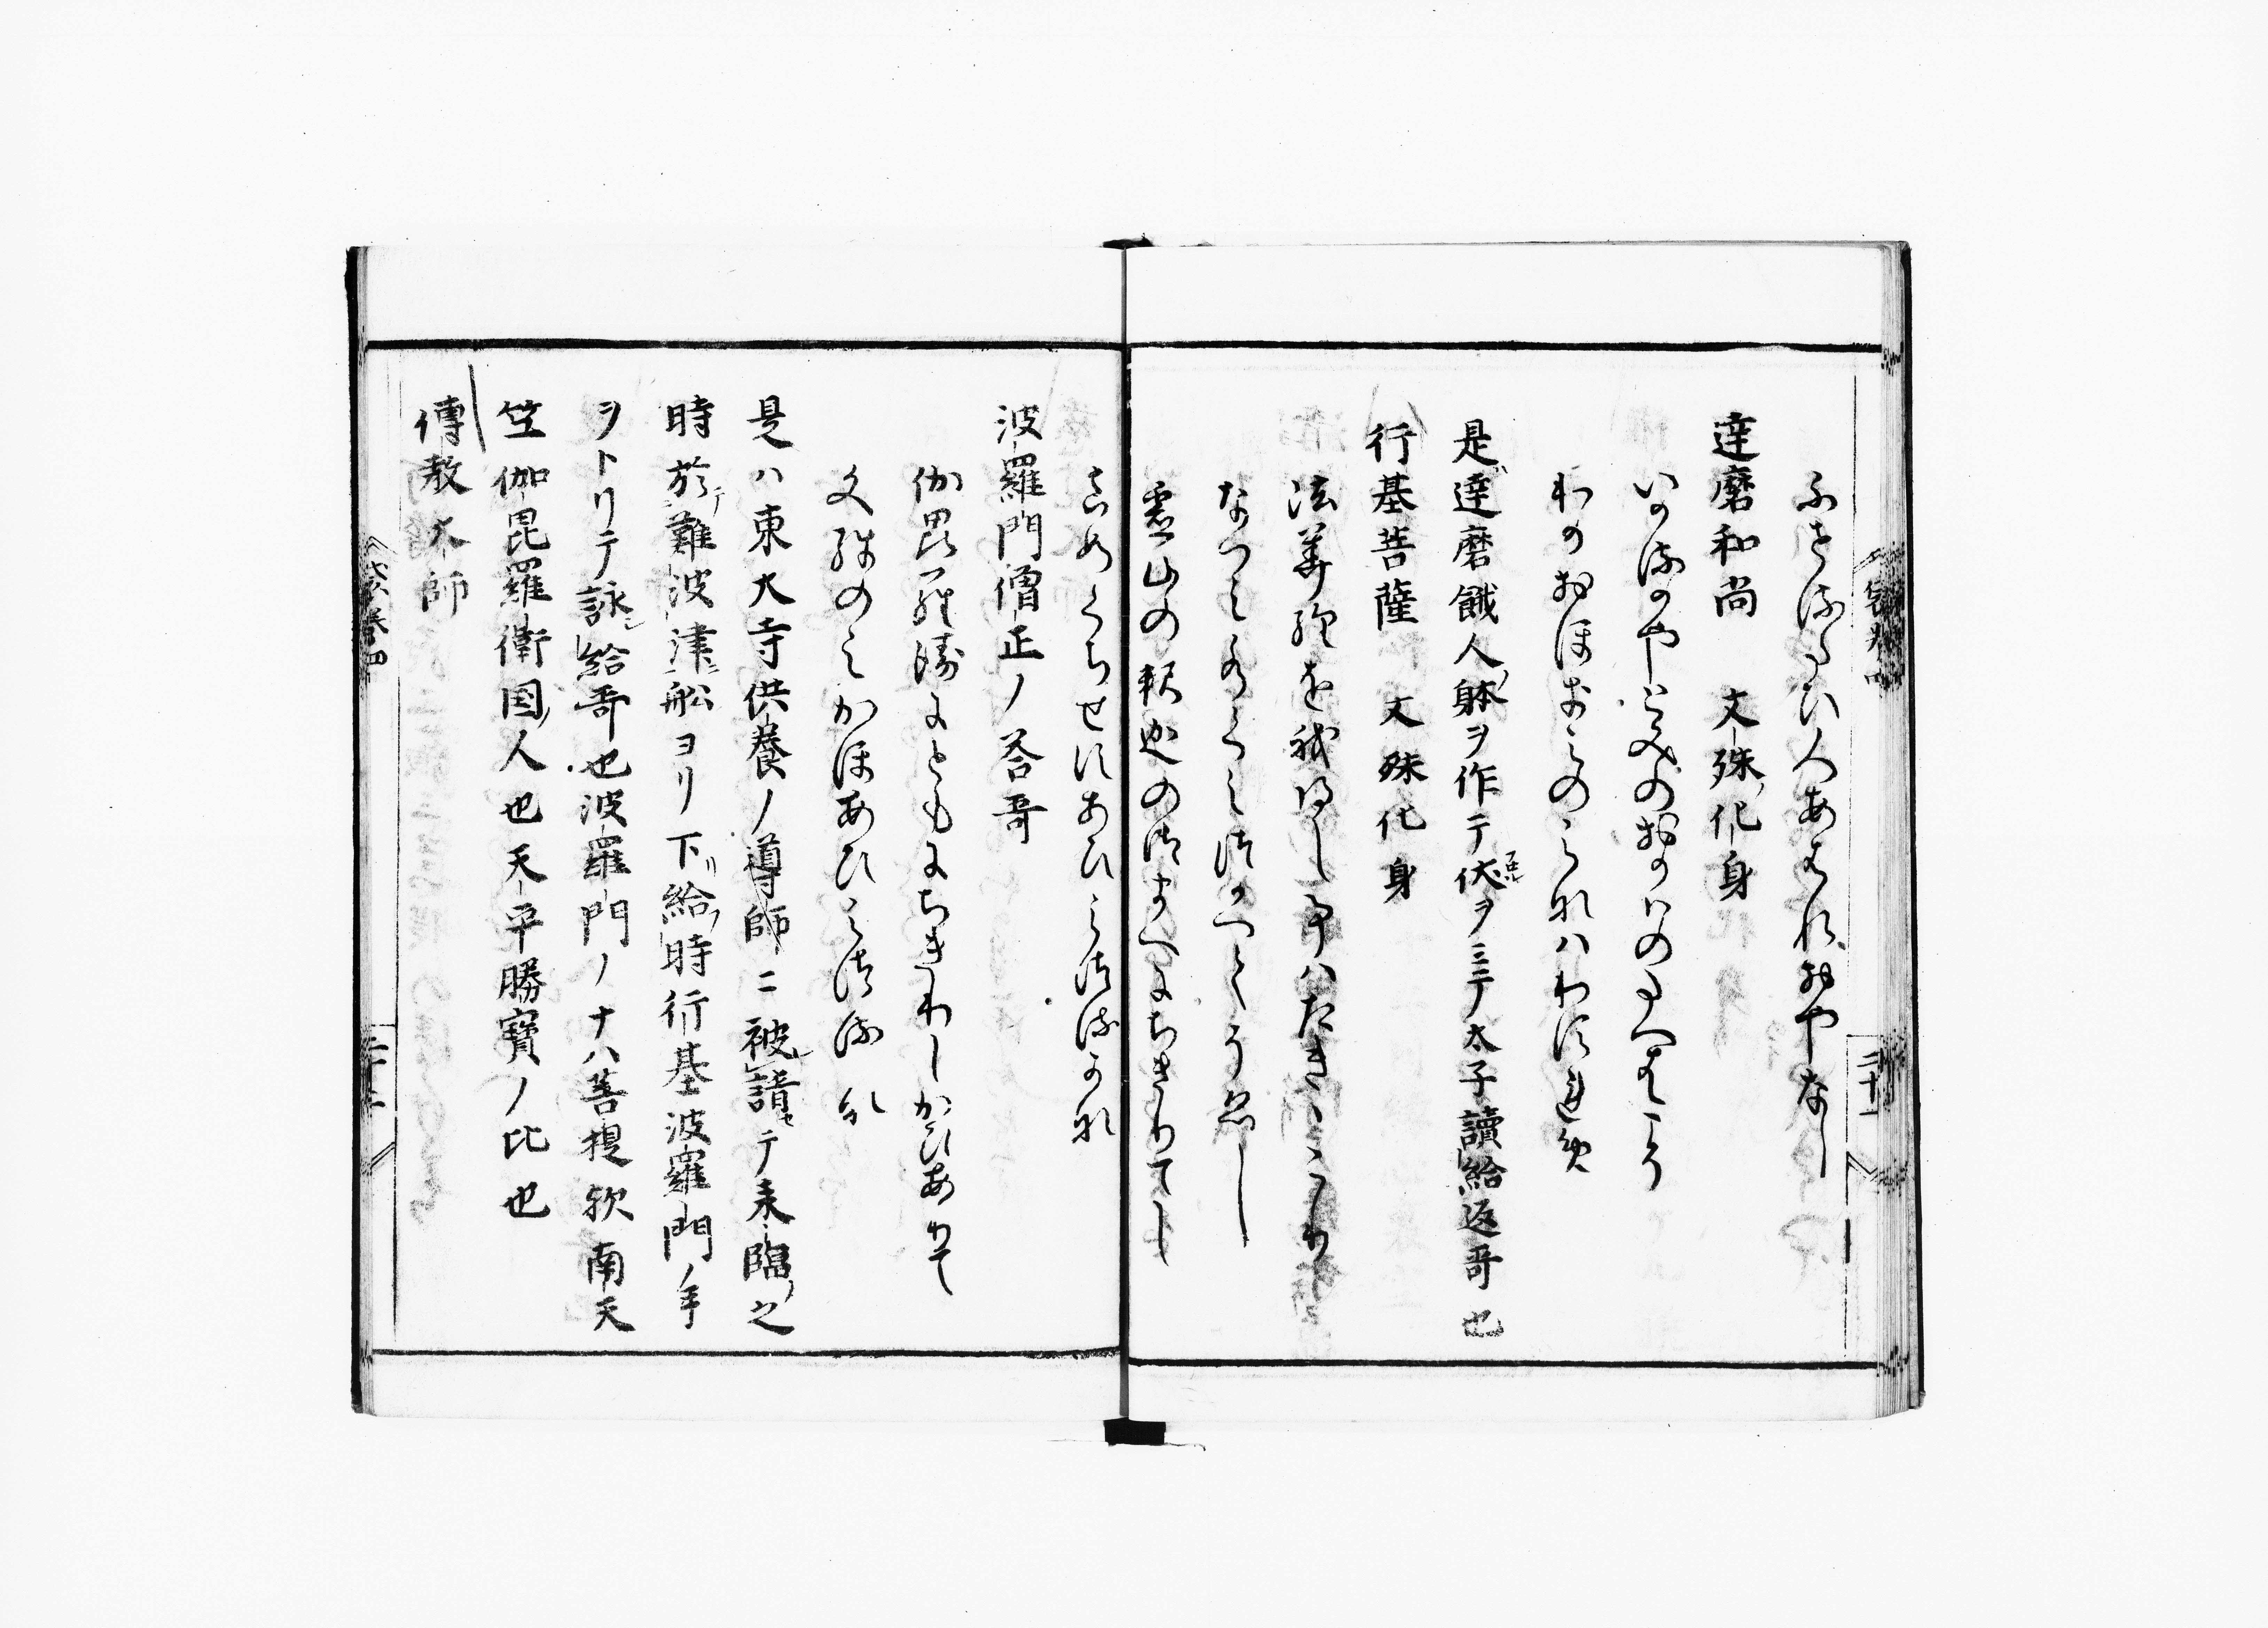 ふせるたひ人あはれおやなし
達磨和尚　文殊化身
いかるかやとみのおかはのたへはこそ
わかおほきみのみなはわすれめ
是ハ達磨餓人ノ躰ヲ作テ伏ヲミテ太子讀給返哥也
行基菩薩　文殊化身
法華経を我えし事ハたきゝこり
なつみ水くみつかへてそえし
霊山の釈迦のみまへにちきりてし
しん如くちせすあひみつるかな
波羅門僧正ノ荅哥
伽毘羅衛にともにちきりしかひありて
文殊のみかほあひみつる哉
是ハ東大寺供養ノ導師ニ被請テ来臨ノ之
時於難波津船ヨリ下リ給時行基波羅門ノ手
ヲトリテ詠給哥也波羅門ノナハ菩提欤南天
竺伽毘羅衛国ノ人也天平勝寶ノ比也
傳教大師
袋巻四
二十一
袋巻四
二十二